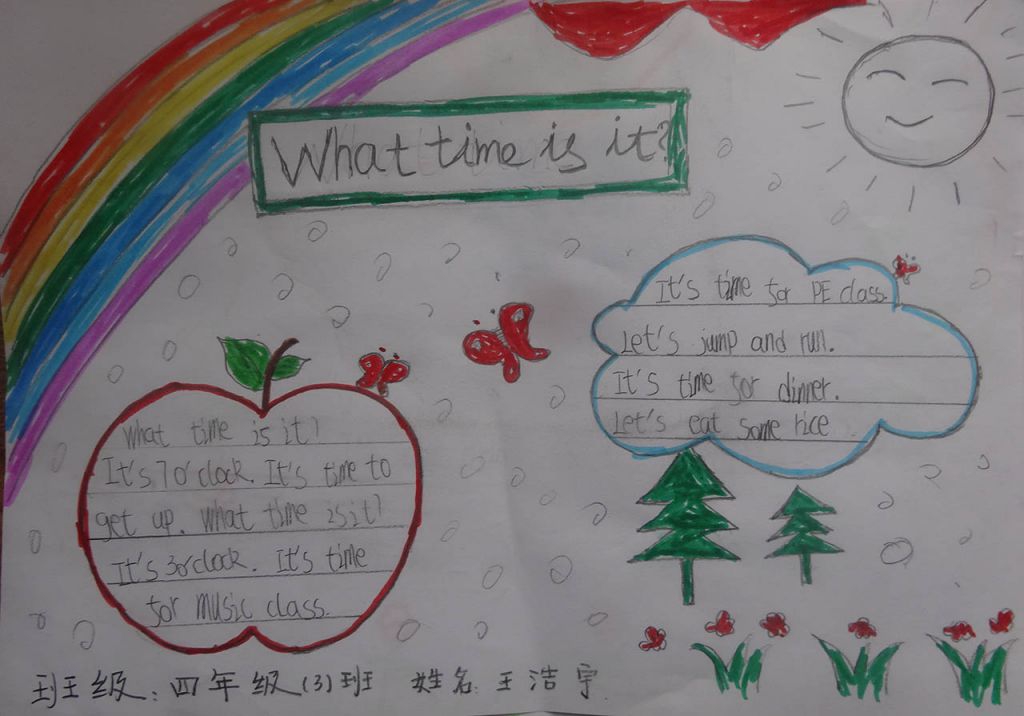 What time is it?
It's time for PE class.
Let's jump and run.
It's time for dinner.
Let's eat some rice.
What time is it?
It's 7 o'clock. It's time to
get up. What time is it?
It's 3 o'clock. It's time
for music class.
班级：四年级(3)班 姓名：王洁宇